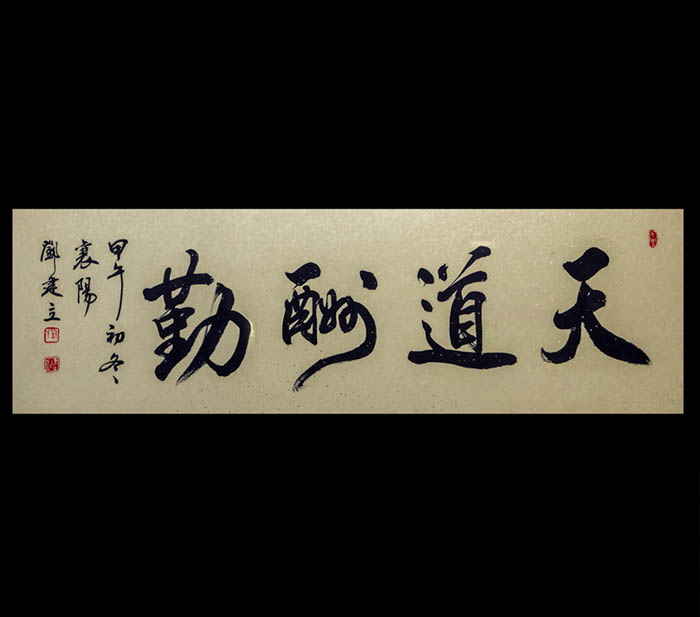 天道酬勤
甲午初冬
襄陽
鄧建立